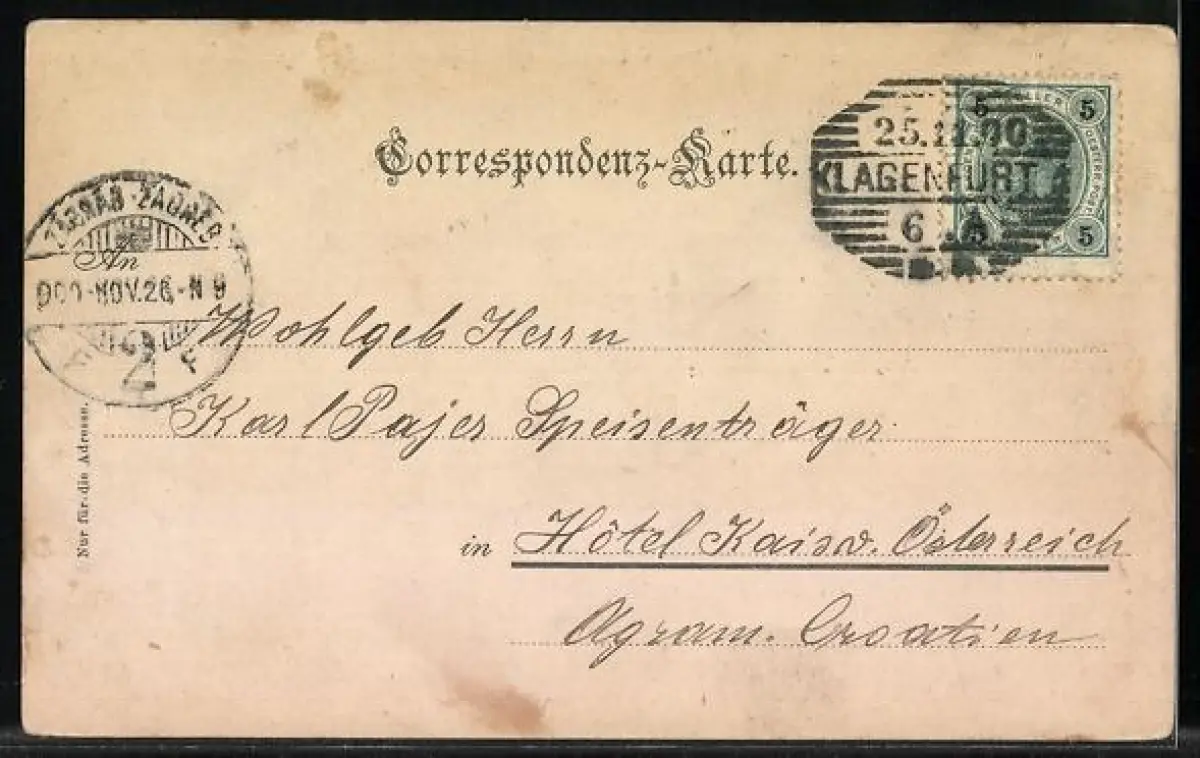 Correspondenz-Karte.
5 HELLER 5
5 5
25.11.00
KLAGENFURT
6
ZÁGRÁB-ZAGREB
An
900-NOV.26.-N 9
2
F
Wohlgeb Herrn
Karl Pajer Speisenträger
in Hôtel Kais v. Österreich
Agram. Croatien
Nur für die Adresse.